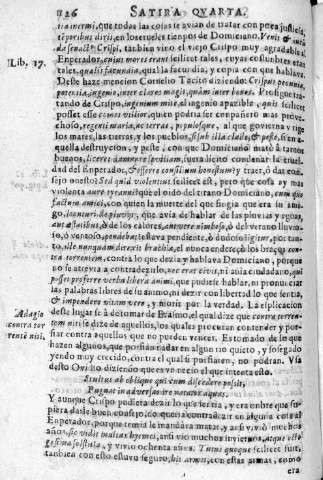 126 SATIRA QVARTA.
tia inermi, que todas las cosas se avian de tratar con poca justicia,
en los crueles tienpos de Domiciano. Venit &
Crispi, tanbien vino el viejo Crispo muy agradable al
Lib, 17. Enperador, cuius mores erant scilicet tales, cuyas costunbres eran
tales, qualis facundia, qual la facudia, y copia con que hablava.
Deste haze mencion Cornelio Tacito diziendo: Crispus pecunia,
potentia, ingenio, inter claros magis, quàm inter bonos. Prosigue tra-
tando de Crispo, ingenium mite, al ingenio apazible, quis scilicet
posset esse comes utilior, quien podria ser conpañero mas prove-
choso, regenti maria, ac terras, populosque, al que governava y rige
los mares, las tierras, y los pueblos, si sub illa clade, & peste, si en a-
quella destruycion, y peste, con que Domiciano matò à tantos
buenos, liceret damnare sævitiam, fuera licito condenar la cruel-
dad del Enperador, & offerre consilium honestum? y traer, ò dar con-
sejo onesto? Sed quid violentius scilicet est, pero que cosa ay mas
violenta aure tyranni que el oido del tirano Domiciano, cum quo
factum amici, con quien la muerte del que fingia que era su ami-
go, locuturi de pluviis, que avia de hablar de las pluvias y aguas,
aut æstibus, ò de los calores, aut nimboso, ò del verano lluvio-
so, ò ventoso, pendebat, estava pendiente, ò dudoso? igitur, por tan-
to, ille nunquam direxit brachia, el nunca endereçò los braços con-
tra torrentem, contra lo que dezia y hablava Domiciano, porque
no se atrevia a contradezirlo, nec erat civis, ni avia ciudadano, qui
posset proferre verba libera animi, que pudiese hablar, ni pronunciar
las palabras libres de su animo, ni dezir con libertad lo que sentia,
& impendere vitam vero, y morir por la verdad. La esplicacion
Adagio deste lugar se à de tomar de Erasmo, el qual dize que contra torren-
contra tor tem niti se dize de aquellos, los quales procuran contender y por-
rente niti, fiar contra aquellos que no pueden vencer. Es tomado de lo que
hazen algunos, que porfian nadando en algun rio quieto, y sosegado
yendo muy crecido, contra el qual si porfiasen, no podran. Usa
desto Ovidio diziendo que es vicio necio el que intenta esto.
Stultus ab obliquo qui cum discedere possit,
Pugnat in adversas ire natator aquas.
Y aunque Crispo podiera dezir lo que sentia, y era conbre que su-
piera darle buen consejo, no queria contradezir en alguna cosa al
Enperador, porque temia le mandara matar, y asi vivio muchos
años, sic vidit multas hyemes, asi vio muchos inviernos, atque octo-
gesima solstitia, y vivio ochenta años. Tutus quoque scilicet fuit,
tanbien con esto estuvo seguro, his armis, con estas armas, como
era